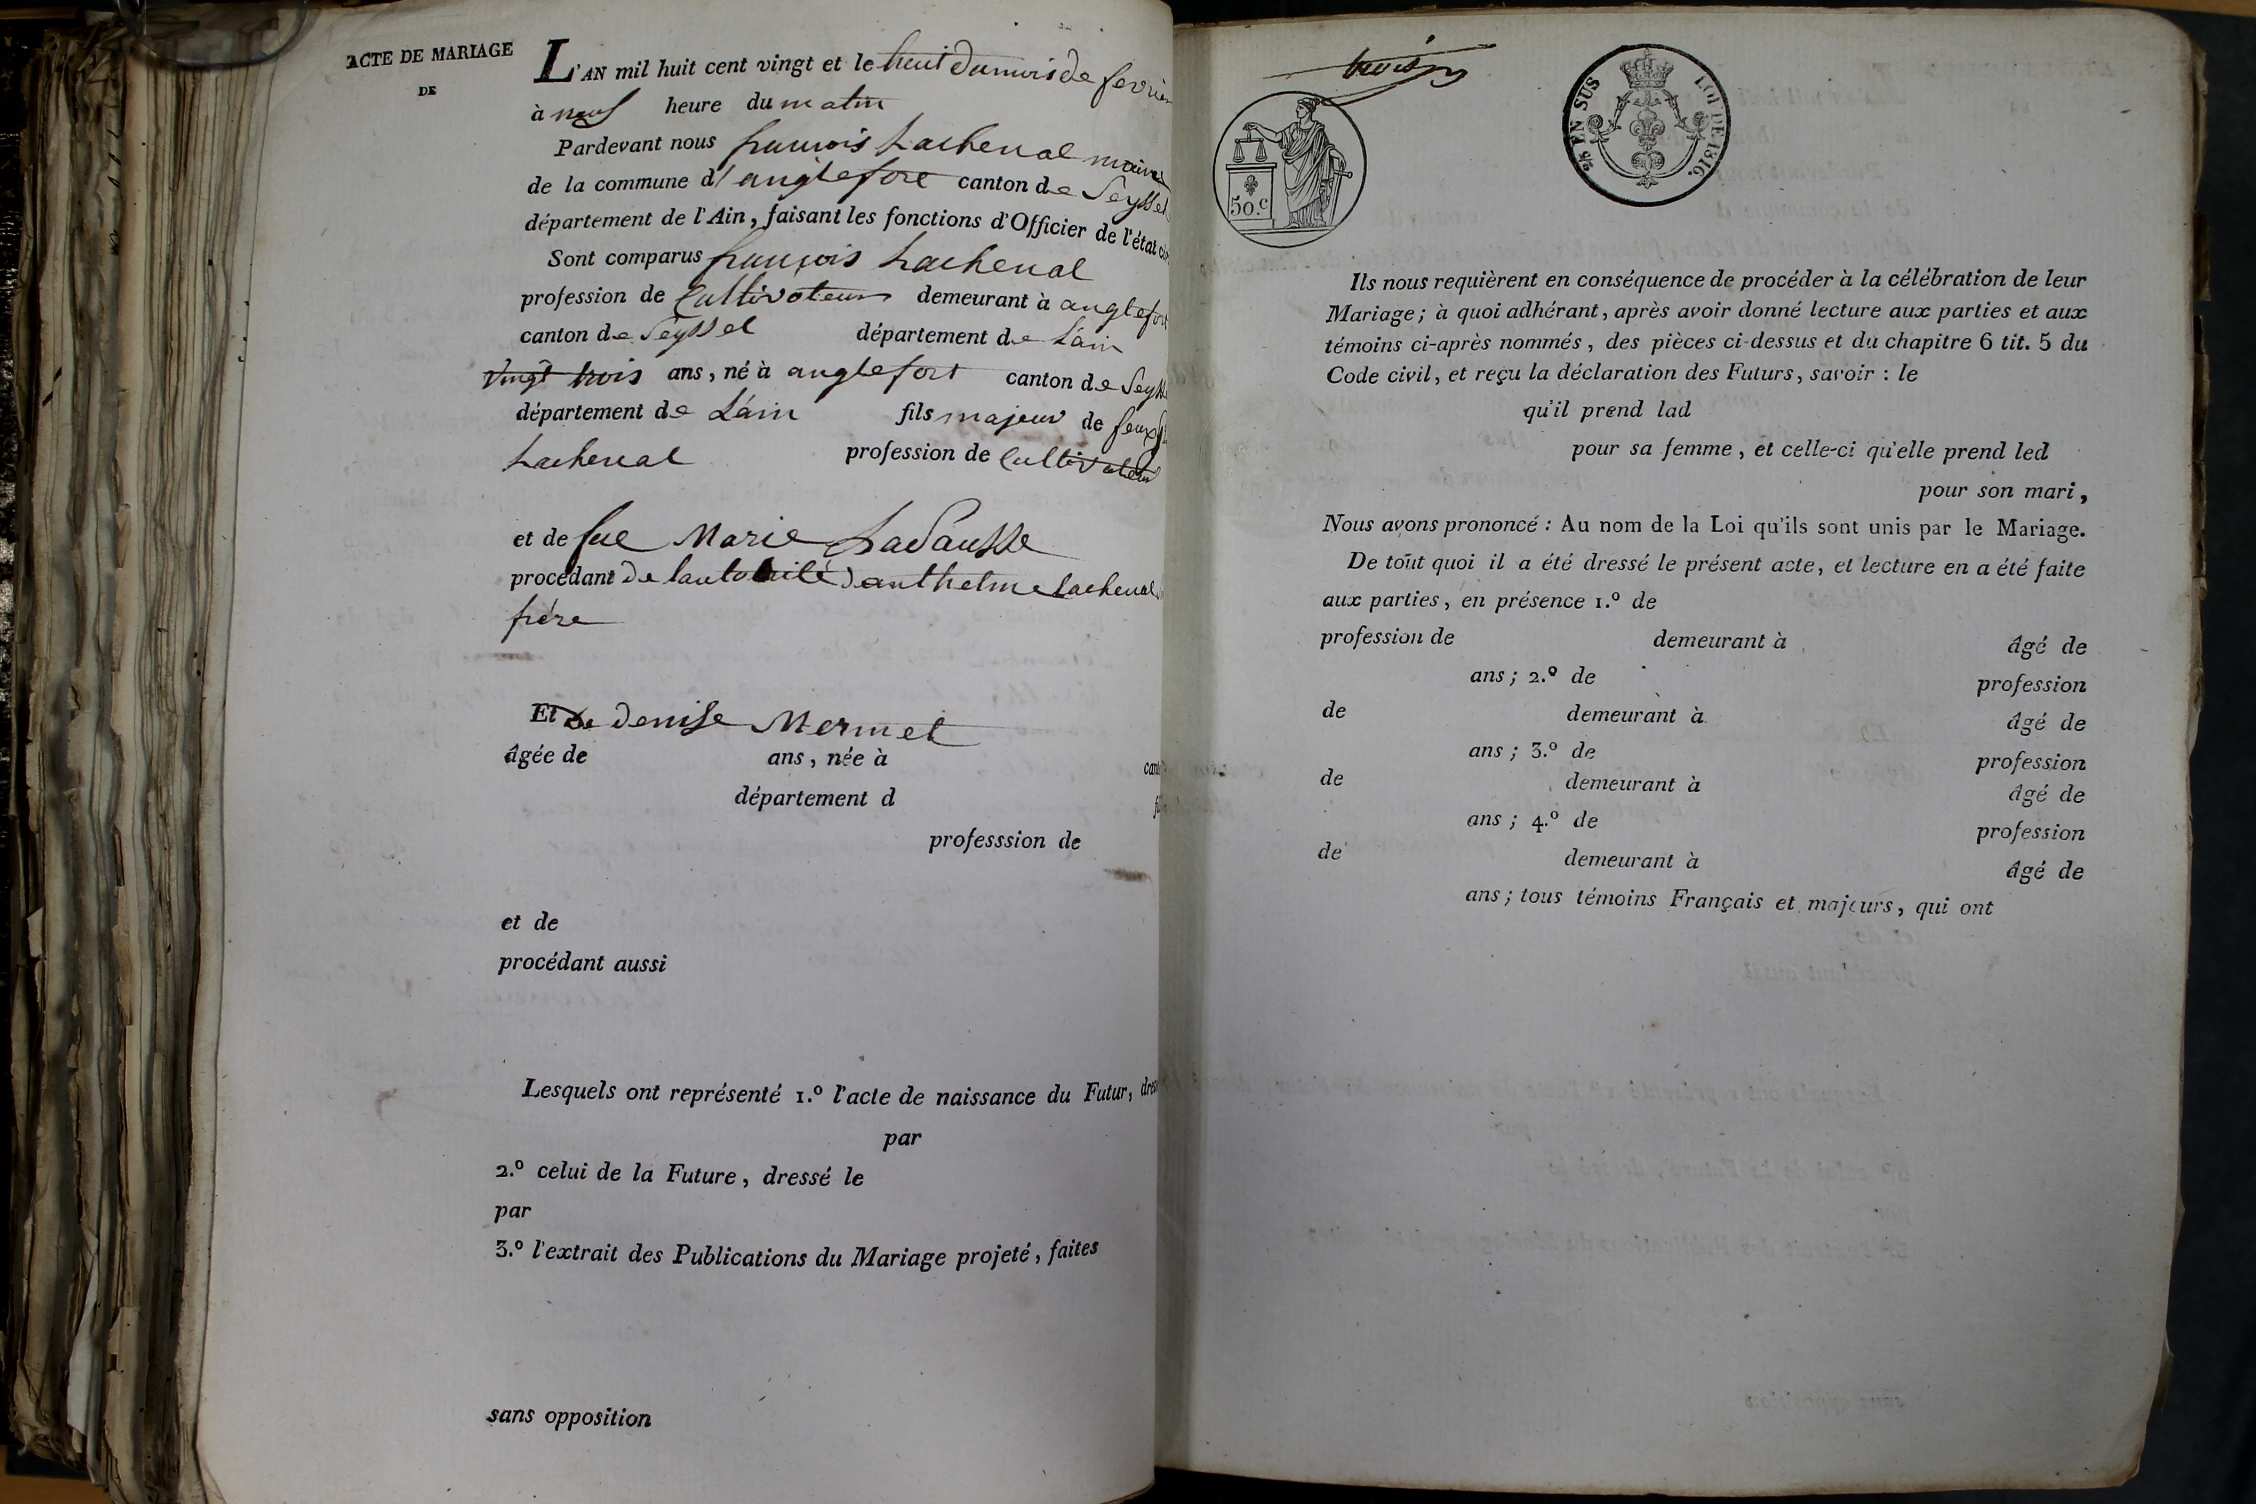 ACTE DE MARIAGE
DE
L'AN mil huit cent vingt et le huit du mois de fevrier
à neuf heure du matin
Pardevant nous francois Lachenal maire
de la commune d'anglefort canton de Seyssel
département de l'Ain, faisant les fonctions d'Officier de l'état
Sont comparus françois Lachenal
profession de Cultivateur demeurant à anglefort
canton de Seyssel département de L'ain
vingt trois ans, né à anglefort canton de
département de L'ain fils majeur de feux
Lachenal profession de Cultivateur
et de fue Marie Ladausse
procédant de lautorité danthelme Lachenal
frére
Et de denise Mermet
âgée de ans, née à
département d
professsion de
et de
procédant aussi
Lesquels ont représenté 1.º l'acte de naissance du Futur,
par
2.º celui de la Future, dressé le
par
3.º l'extrait des Publications du Mariage projeté, faites
sans opposition
trois
2/5 EN SUS LOI DE 1816.
50.c
Ils nous requièrent en conséquence de procéder à la célébration de leur
Mariage; à quoi adhérant, après avoir donné lecture aux parties et aux
témoins ci-après nommés, des pièces ci-dessus et du chapitre 6 tit. 5 du
Code civil, et reçu la déclaration des Futurs, savoir : le
qu'il prend lad
pour sa femme, et celle-ci qu'elle prend led
pour son mari,
Nous avons prononcé : Au nom de la Loi qu'ils sont unis par le Mariage.
De tout quoi il a été dressé le présent acte, et lecture en a été faite
aux parties, en présence 1.º de
profession de demeurant à âgé de
ans; 2.º de profession
de demeurant à âgé de
ans; 3.º de profession
de demeurant à âgé de
ans; 4.º de profession
de demeurant à âgé de
ans; tous témoins Français et majeurs, qui ont